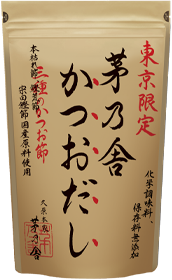 東京限定
茅乃舎
かつおだし
化学調味料、
保存料無添加
三種のかつお節
本枯れ節
宗田鰹節 国産原料使用
久原本家
茅乃舎